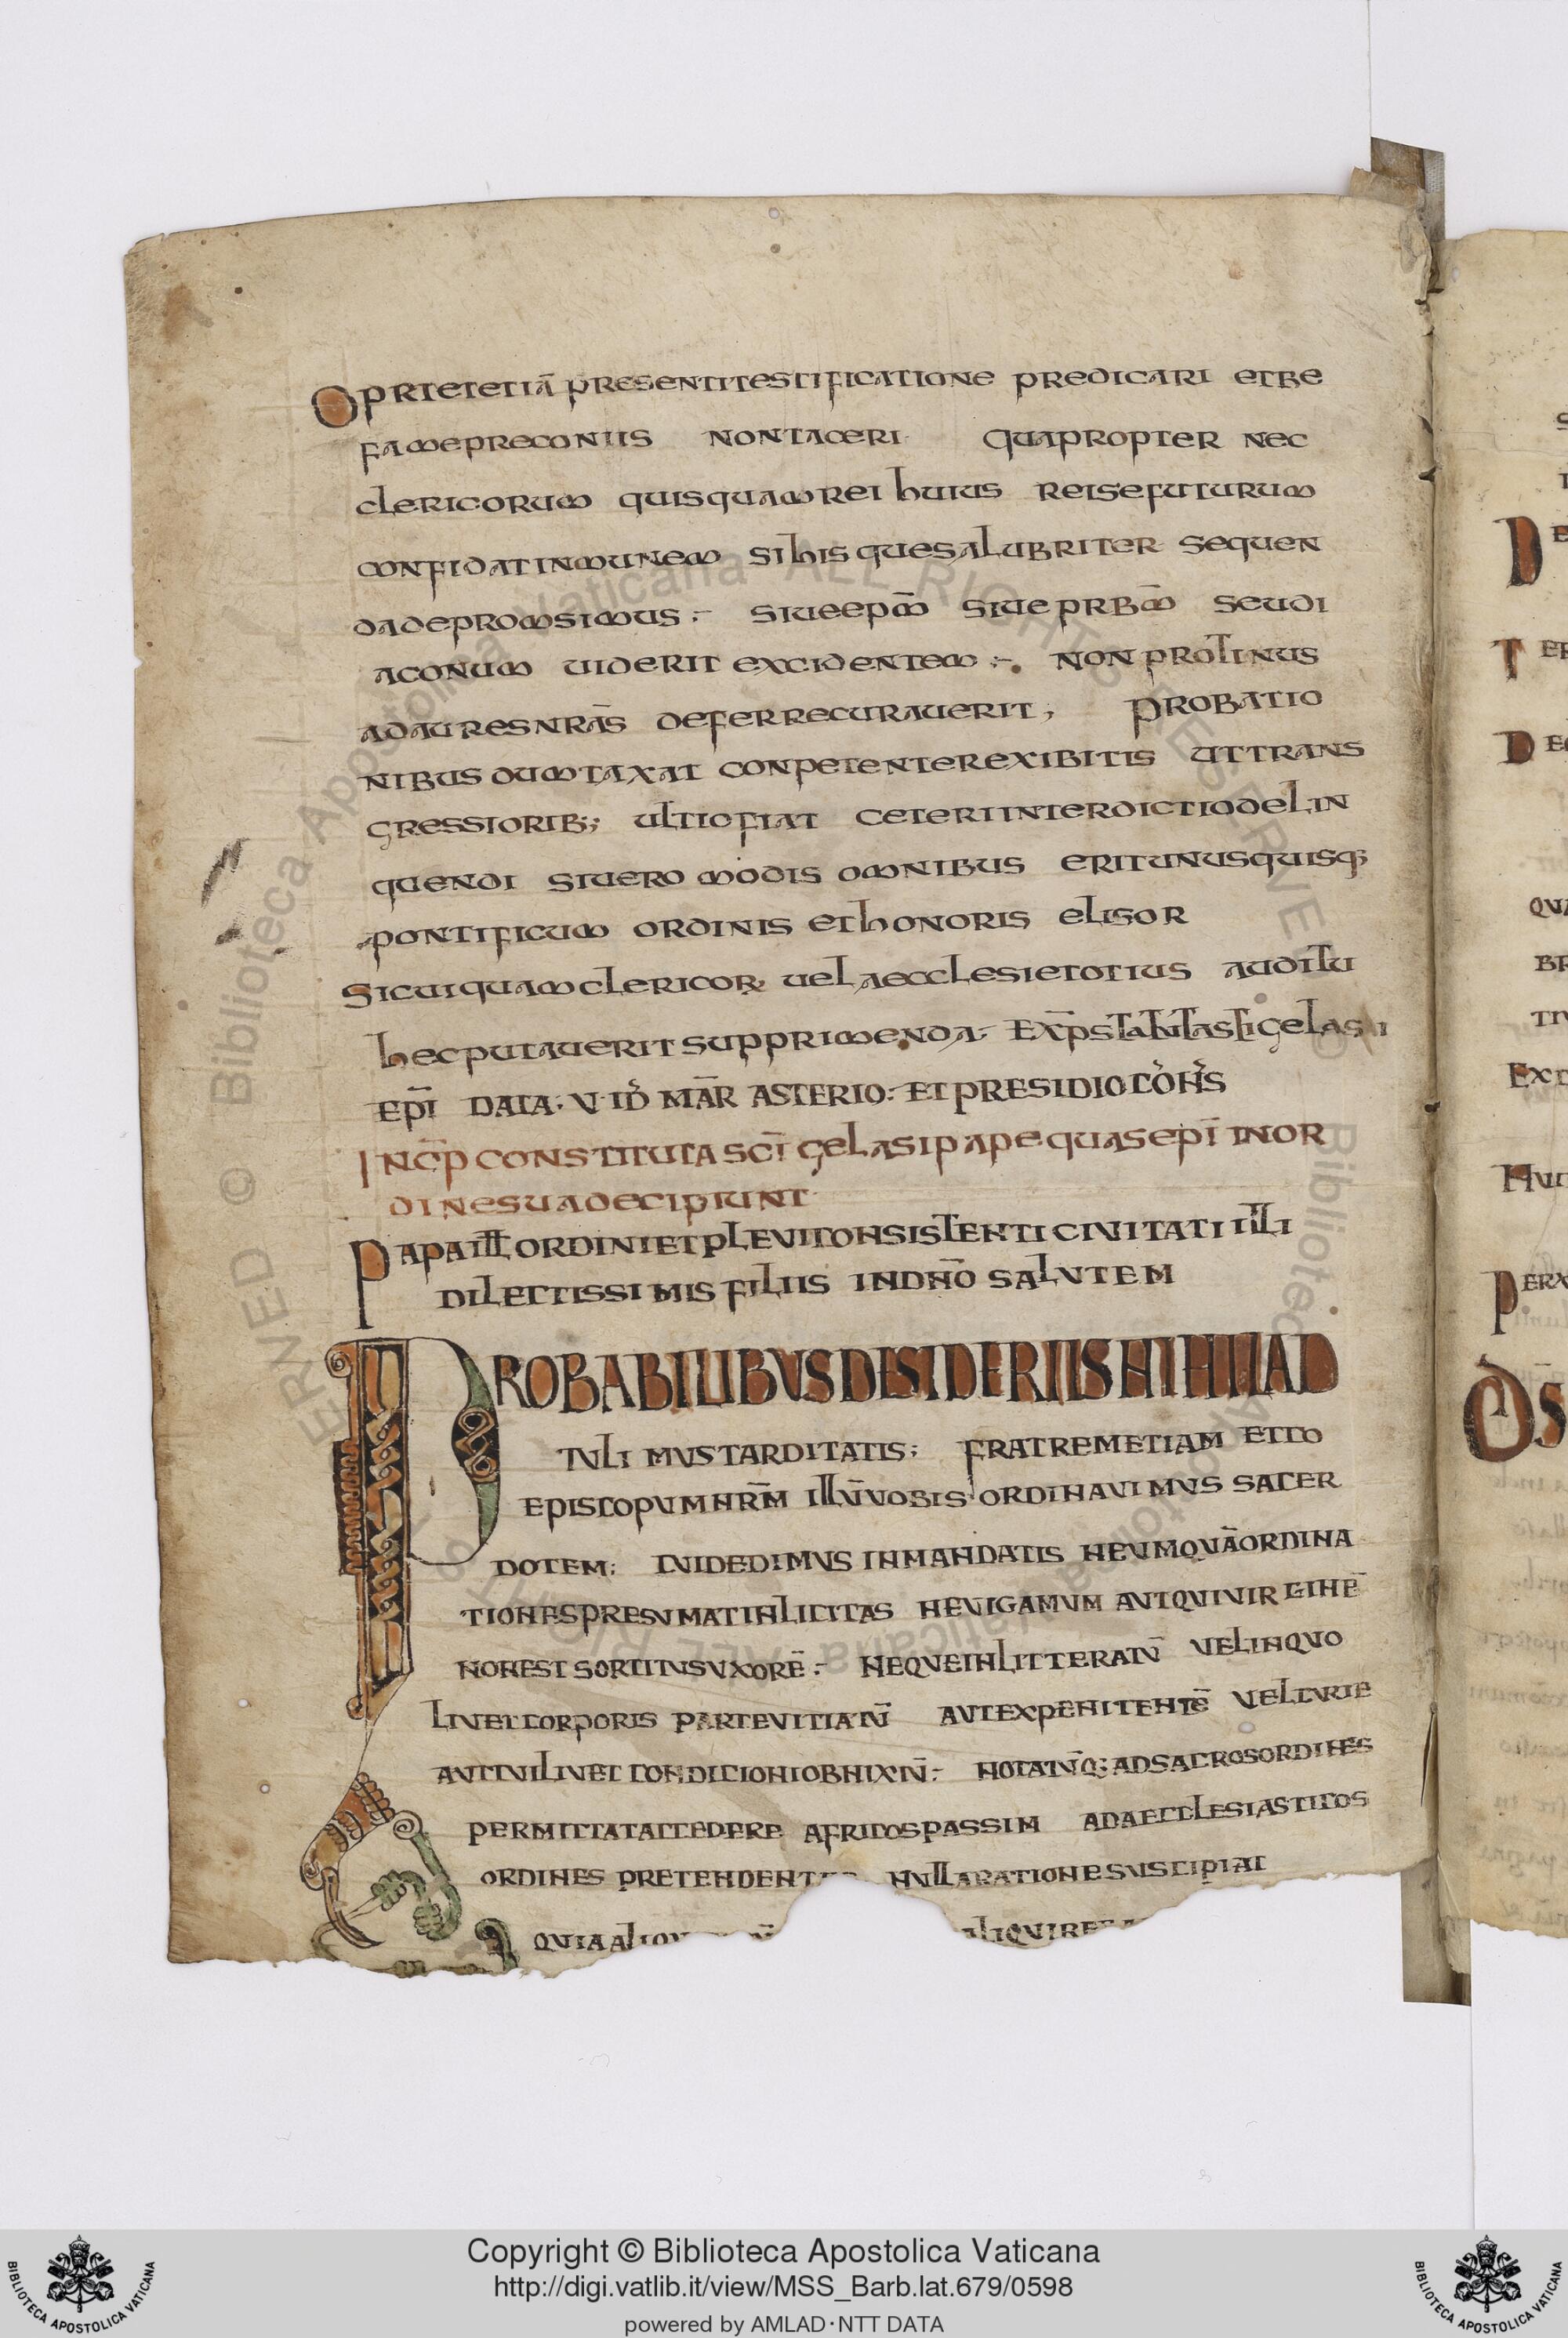 OPRTETETIĀ PRESENTITESTIFICATIONE PREDICARI ETBE
FAMEPRECONIIS NONTACERI QUAPROPTER NEC
CLERICORUM QUISQUAMREI HUIUS REISEFUTURUM
CONFIDATINMUNEM SIHISQUESALUBRITER SEQUEN
DADEPROMSIMUS:- SIUEEPM̄ SIUEPRBM̄ SEUDI
ACONUM UIDERIT EXCIDENTEM:- NONPROTINUS
ADAURESNRĀS DEFERRECURAUERIT; PROBATIO
NIBUSDUMTAXAT CONPETENTEREXIBITIS UTTRANS
GRESSIORIB:; ULTIOFIAT CETERIINTERDICTIODELIN
QUENDI SIUERO MODIS OMNIBUS ERITUNUSQUISQ;
PONTIFICUM ORDINIS ETHONORIS ELISOR
SICUIQUAMCLERICOR UELAECCLESIETOTIUS AUDITU
HECPUTAUERITSUPPRIMENDA EXP̄
GELASII
EPĪ DATA. V ID MAR̄ ASTERIO: ETPRESIDIO
INC̄P CONSTITUTA SCĪ GELASIPAPEQUASEPĪ INOR
DINESUADECIPIUNT
PAPAILL ORDINIETPLEVICONSISTENTI CIVITATI ILLI
DILECTISSIMIS FILIIS INDNŌ SALVTEM
PROBABILIBVSDESIDERIISNIHILAD
TVLIMVSTARDITATIS; FRATREMETIAM ETCO
EPISCOPVMNRM̄ ILLV̄VOBIS ORDINAVIMVS SACER
DOTEM: CVIDEDIMVS INMANDATIS NEVMQVĀORDINA
TIONESPRESVMATINLICITAS NEVIGAMVM AVTQVIVIRGINĒ
NONESTSORTITVSVXORĒ:- NEQVEINLITTERATV̄ VELINQVO
LIVETCORPORIS PARTEVITIATV̄ AVTEXPENITENTĒ VELCVRIE
AVTCVILIVET CONDICIONIOBNIXV̄:- NOTATV̄Q:ADSACROSORDINES
PERMITTATACCEDERE AFRICOSPASSIM ADAECCLESIASTICOS
ORDINES PRETENDENT NVLLARATIONESVSCIPIAT
QVIAALIQV LIQVIREBA
Copyright © Biblioteca Apostolica Vaticana
http://digi.vatlib.it/view/MSS_Barb.lat.679/0598
powered by AMLAD·NTT DATA